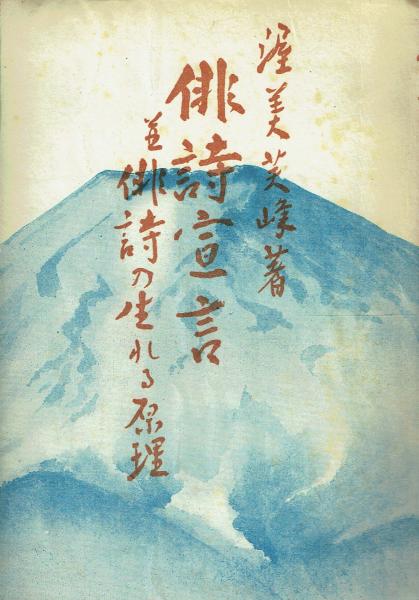 渥美芙峰著
俳詩宣言
並俳詩の生れる原理